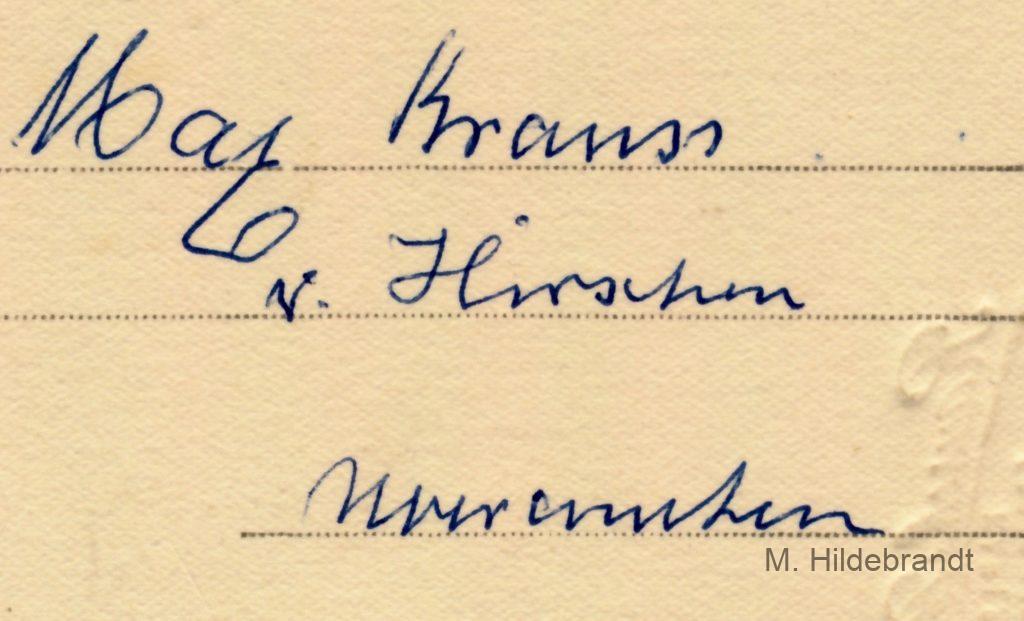 Max Krauss
v. Hirschen
M. Hildebrandt